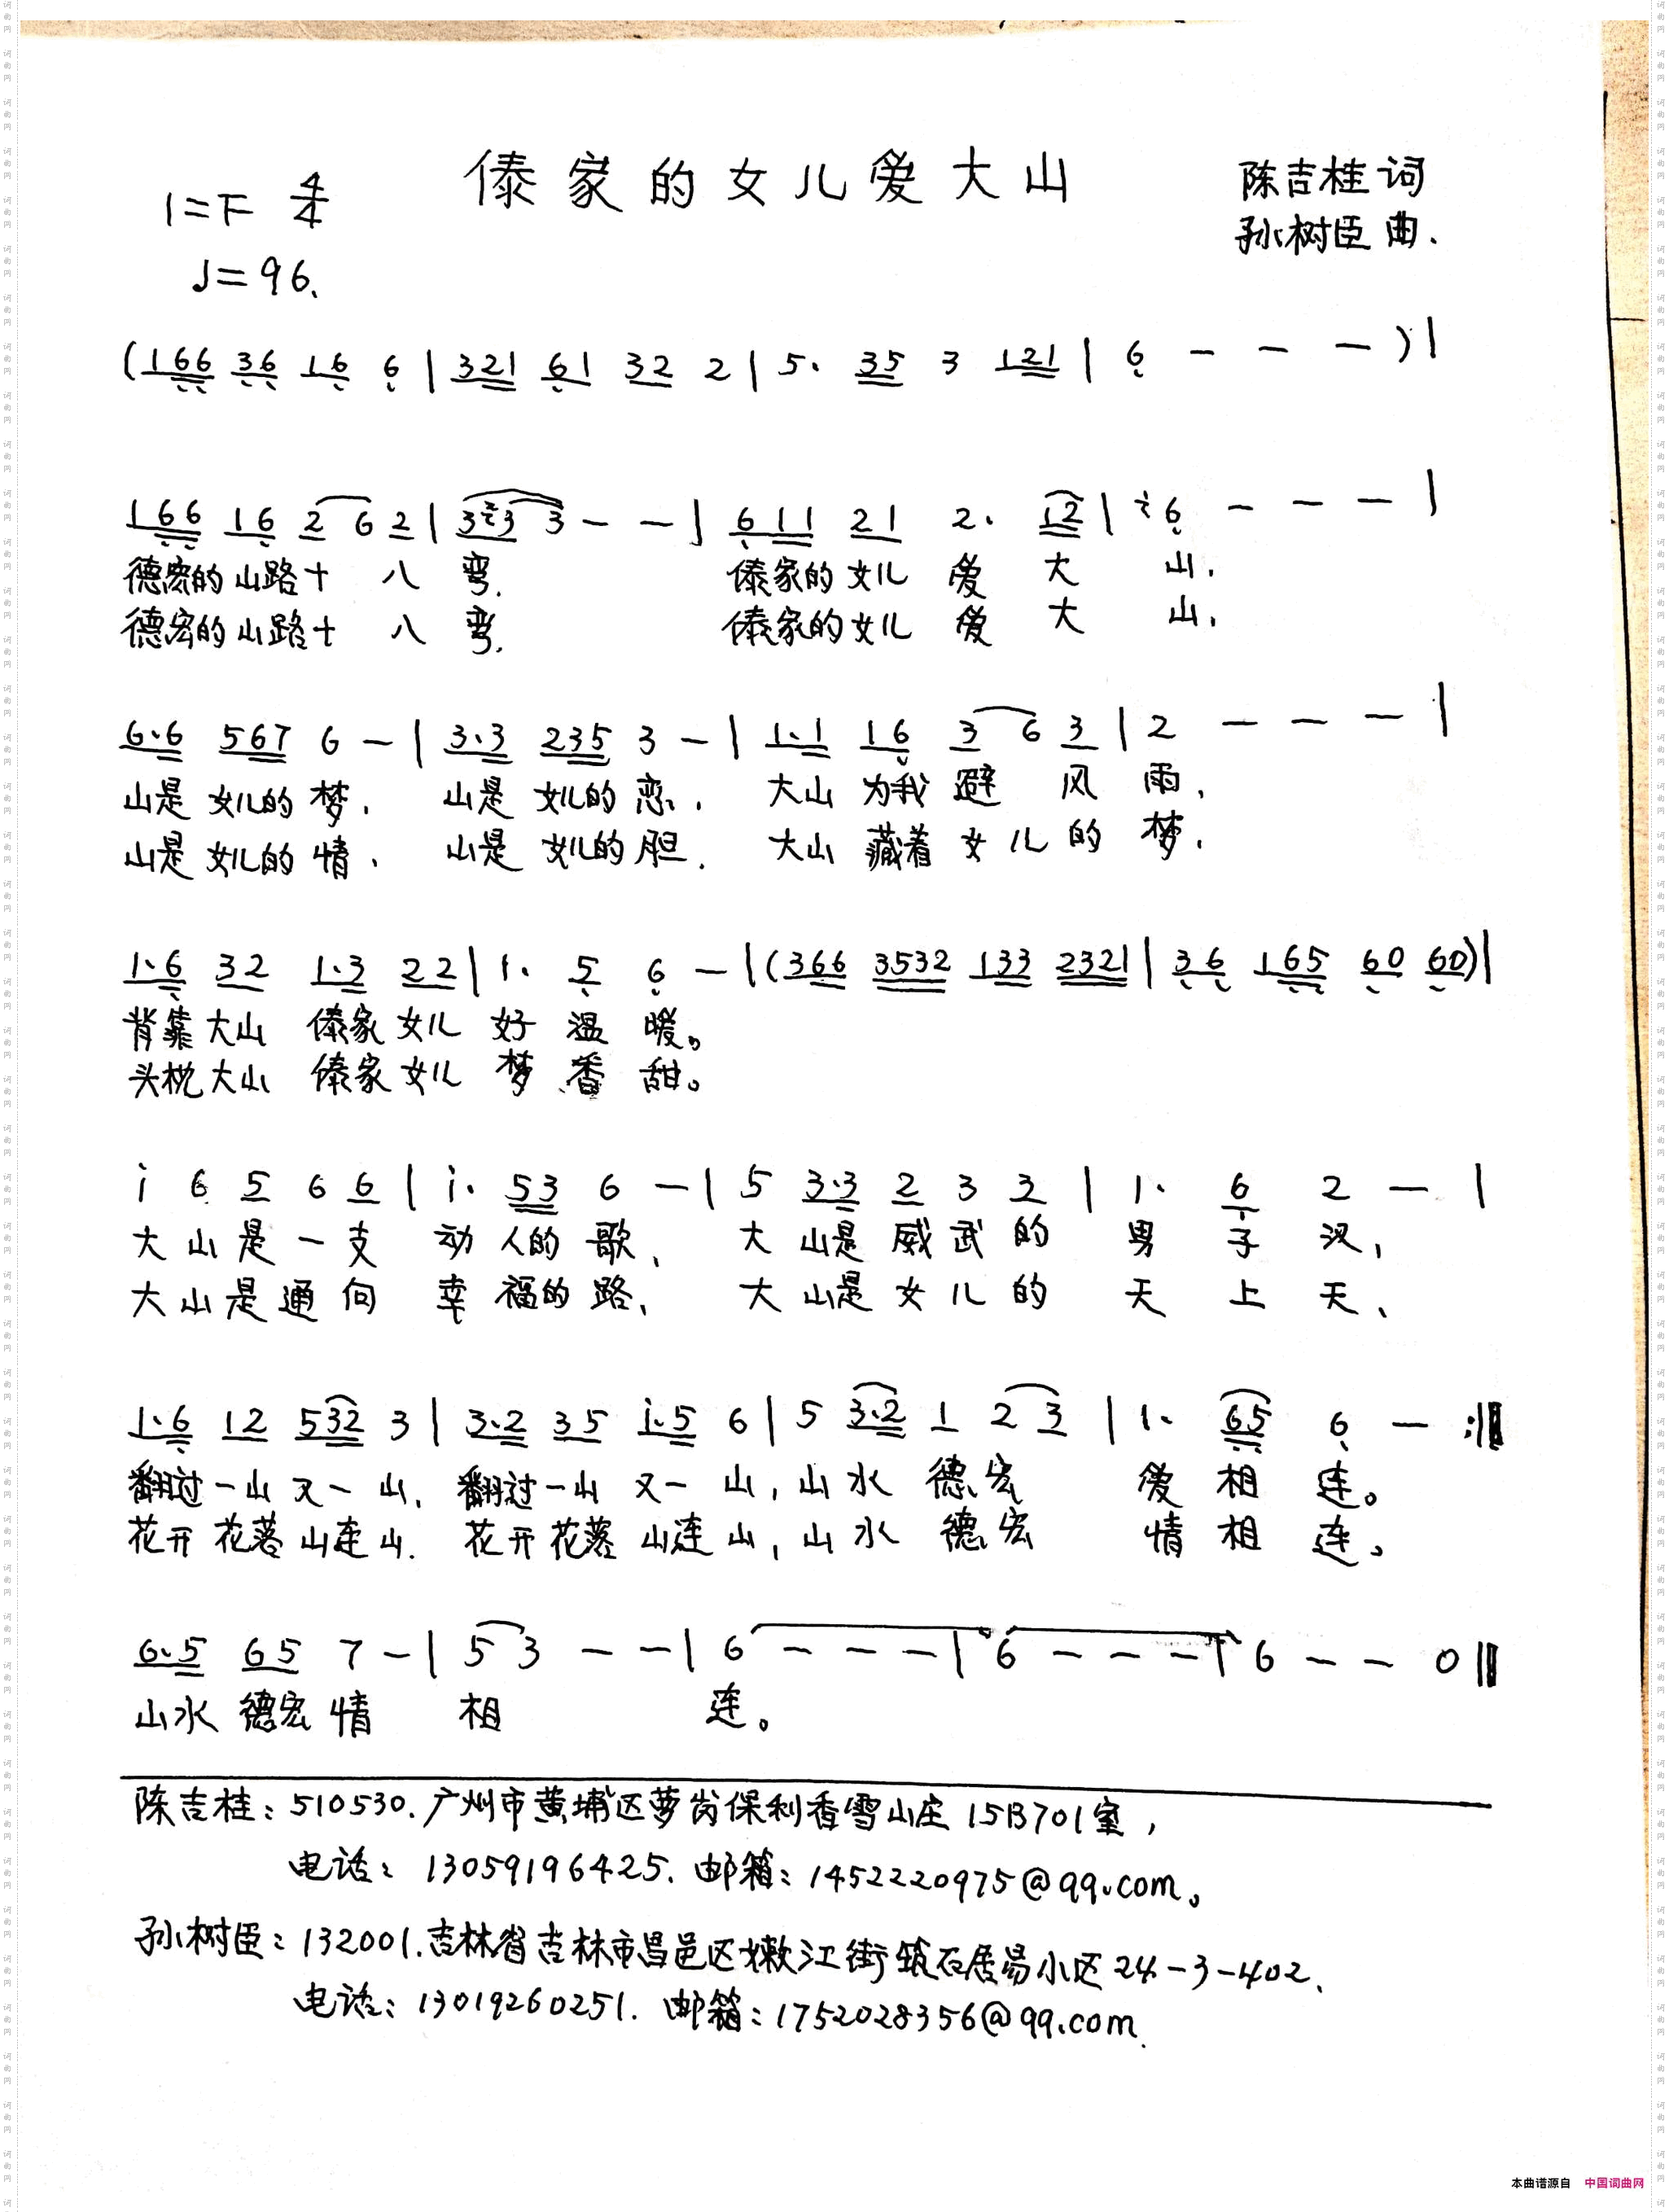 傣家的女儿爱大山
1=F 4/4
陈吉桂 词
孙树臣 曲.
♩=96.
(166 36 16 6 | 321 61 32 2 | 5. 35 3 121 | 6 - - - )|
166 16 2 6 2 | 323 3 - - | 611 21 2. 12 | 2 6 - - - |
德宏的山路十 八 弯. 傣家的女儿 爱 大 山.
德宏的山路十 八 弯. 傣家的女儿 爱 大 山.
6.6 567 6 - | 3.3 235 3 - | 1.1 16 3 6 3 | 2 - - - |
山是 女儿的 梦. 山是 女儿的 恋. 大山 为我 避 风 雨.
山是 女儿的 情. 山是 女儿的 胆. 大山 藏着 女儿 的 梦.
1.6 32 1.3 22 | 1. 5 6 - |(366 3532 133 2321 | 36 165 60 60)|
背靠大山 傣家女儿 好 温 暖。
头枕大山 傣家女儿 梦 香 甜。
i 6 5 6 6 | i. 53 6 - | 5 3.3 2 3 3 | 1. 6 2 - |
大山是一支 动人的歌、 大山是威武的 男 子 汉,
大山是通向 幸福的路、 大山是女儿的 天 上 天、
1.6 12 532 3 | 3.2 35 i.5 6 | 5 3.2 1 2 3 | 1. 65 6 - :‖
翻过一山又一山, 翻过一山 又一 山, 山水 德宏 爱 相 连。
花开花落山连山. 花开花落 山连山, 山水 德宏 情 相 连。
6.5 65 7 - | 5 3 - - | 6 - - - | 6 - - - | 6 - - 0 ‖
山水 德宏 情 相 连。
陈吉桂: 510530. 广州市黄埔区萝岗保利香雪山庄 15B701室,
电话: 13059196425. 邮箱: 1452220975@qq.com。
孙树臣: 132001. 吉林省吉林市昌邑区嫩江街筑石居易小区 24-3-402.
电话: 13019260251. 邮箱: 1752028356@qq.com.
本曲谱源自 中国词曲网